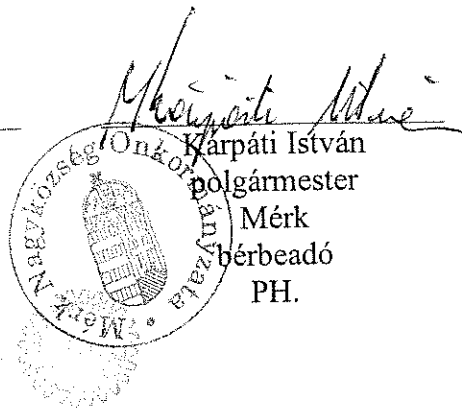 Kárpáti István
Kárpáti István
polgármester
Mérk
bérbeadó
PH.
Mérk Nagyközség Önkormányzata